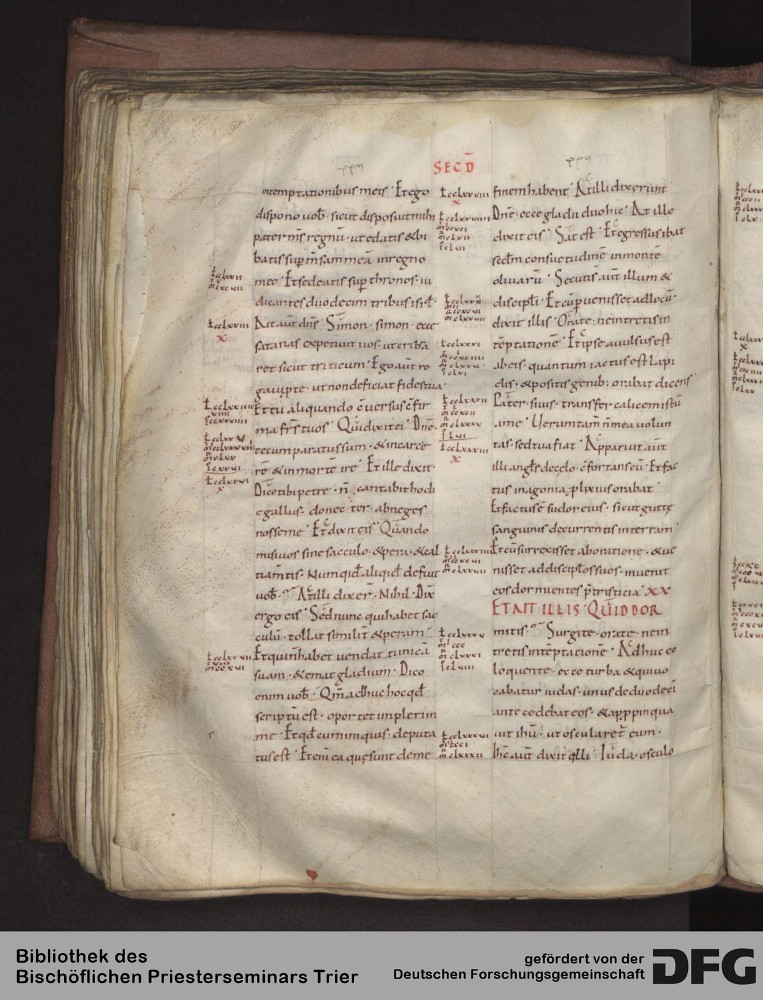 SECD
intemptationibus meis · Et ego
dispono uob · sicut disposuit mihi
pater ms regnū · ut edatis & bi
batis sup mēsam meā in regno
meo · Et sedeatis sup thronos · iu
dicantes duodecim tribus isrl ·
Ait aut dns · Simon · simon · ecce
satanas expetiuit uos · ut cribra
ret sicut triticum · Ego aut ro
gaui p te · ut non deficiat fides tua
Et tu aliquando cuersus cfir
ma frs tuos · Qui dixit ei · Dne ·
tecum paratus sum · & in carce
rē & in mortē ire · Et ille dixit ·
Dico tibi petre · n cantabit hodi
e gallus · donec ter · abneges
nosse me · Et dixit eis · Quando
misi uos sine sacculo · & pera · & cal
tiamtis · Numqd aliqd defuit
uob · At illi dixer · Nihil · Dix
ergo eis · Sed nunc qui habet sac
culū · tollat similit & peram ·
Et qui n habet uendat tunicā
suam · & emat gladium · Dico
enim uob · Qm adhuc hoc qd
scriptū est · oportet impleri in
me · Et qd cum iniquis · deputa
tus est · Etem ea quę sunt de me
finem habent · At illi dixerunt
Dne · ecce gladii duo hic · At ille
dixit eis · Sat est · Et egressus ibat
scdm consuetudinē in montē
oliuarū · Secuti s aut illum &
discipli · Et cu puenisset ad locū ·
dixit illis · Orate · ne intretis in
tēptationē · Et ipse auulsus est
ab eis · quantum iactus est lapi
dis · & positis genib · orabat dicens
Pater · si uis · transfer calicem istū
a me · Uerumtam n mea uolun
tas · sed tua fiat · Apparuit aut
illi angls de celo · cfortans eū · Et fac
tus in agonia · plixius orabat ·
Et factus ē sudor eius · sicut guttę
sanguinis decurrentis in terram ·
Et cū surrexisset ab oratione · & ue
nisset ad discipłos suos · inuenit
eos dormientes p tristicia · XX
ET AIT ILLIS · QUID DOR
mitis · Surgite · orate · ne in
tretis in tēptationē · Adhuc eo
loquente · ecce turba & qui uo
cabatur iudas · unus de duodeci
antecedebat eos · & appropinqua
uit ihū · ut oscularet eum ·
Ihc aut dixit illi · Iuda · osculo
Bibliothek des
Bischöflichen Priesterseminars Trier
gefördert von der
Deutschen Forschungsgemeinschaft
DFG